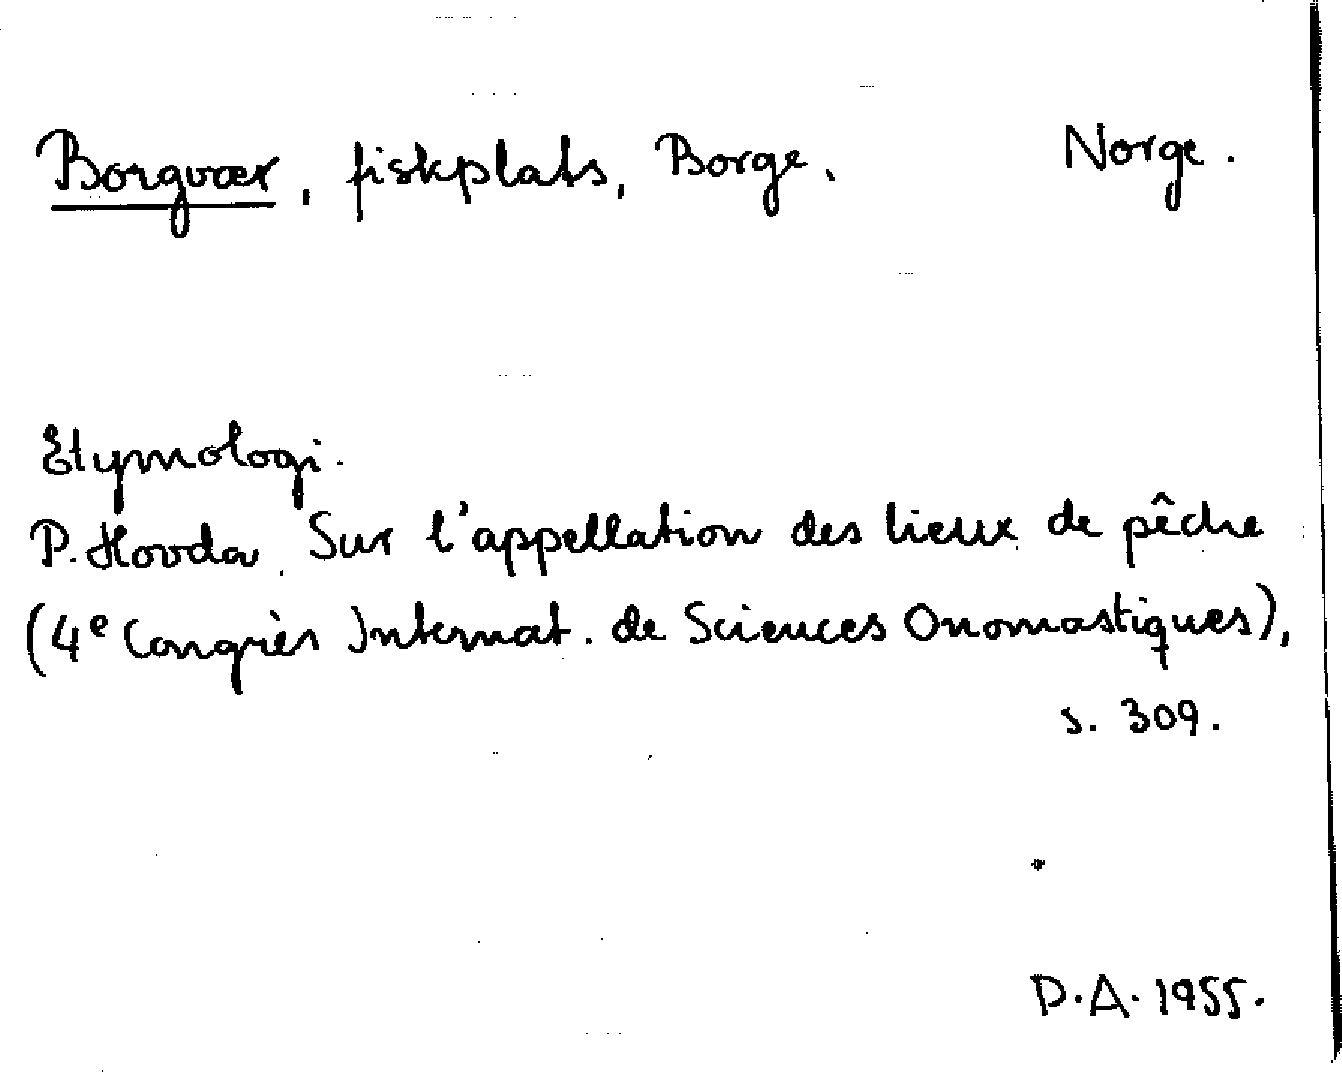 Borgvær, fiskplats, Borge. Norge.
Etymologi.
P. Hovda. Sur l'appellation des lieux de pêche
(4e Congrès Internat. de Sciences Onomastiques),
s. 309.
D.A. 1955.